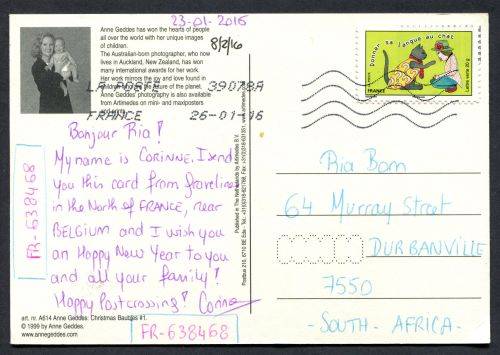 23-01-2016
Anne Geddes has won the hearts of people
all over the world with her unique images
of children.
The Australian-born photographer, who now
lives in Auckland, New Zealand, has won
many international awards for her work.
Her work mirrors the joy and love found in
children, the future of the planet.
Anne Geddes' photography is also available
from Artimedes on mini- and maxiposters
8/2/16
LA POSTE 39078A
FRANCE 26-01-16
donner sa langue au chat
FRANCE
Lettre verte 20 g
Bonjour Ria!
My name is CORINNE. I send
you this card from
in the North of FRANCE, near
BELGIUM and I wish you
an Happy New Year to you
and all your family!
Happy Postcrossing! Corinne
FR-638468
art. nr. A614 Anne Geddes: Christmas Baubles #1.
© 1999 by Anne Geddes.
www.annegeddes.com
FR-638468
Published in The Netherlands by Artimedes B.V.
Postbus 210, 6710 BE Ede
Ria Born
64 Murray Street
DURBANVILLE
7550
- SOUTH - AFRICA -